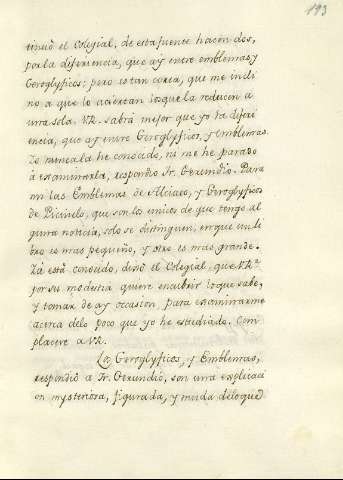 193
tinuò el Colegial, de esta fuente hacen dos,
por la diferencia, que ay entre emblemas y
Geroglyficos; pero es tan corta, que me incli
no a que lo aciertan los que la reducen a
una sola. V.R. sabrá mejor que yo la diferi
encia, que ay entre Geroglyficos, y Emblemas.
Yo nunca la he conocido, ni me he parado
á examinarla, respondio Fr. Gerundio. Para
mi las Emblemas de Alciato, y Geroglyficos
de Picinelo, que son los unicos de que tengo al
guna noticia, solo se distinguen, en que un li
bro es mas pequeño, y otro es más grande.
Ya está conocido, dixo el Colegial, que V.R.
por su modestia quiere encubrir lo que sabe,
y tomar de ay occasion para examinarme
acerca de lo poco que yo he estudiado. Com
placere a V.R.
Los Geroglyficos, y Emblemas,
respondió a Fr. Gerundio, son una explicaci
on mysteriosa, figurada, y muda de lo que d